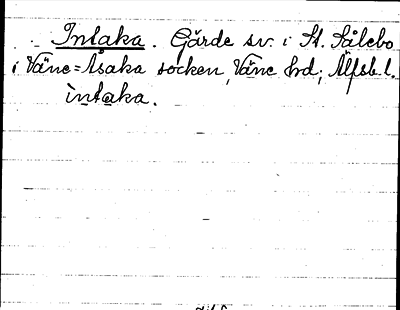 Intaka. Gärde sv. i St. Sålebo
i Väne=Åsaka socken, Väne hrd, Älfsb. l.
ìnt@ka.